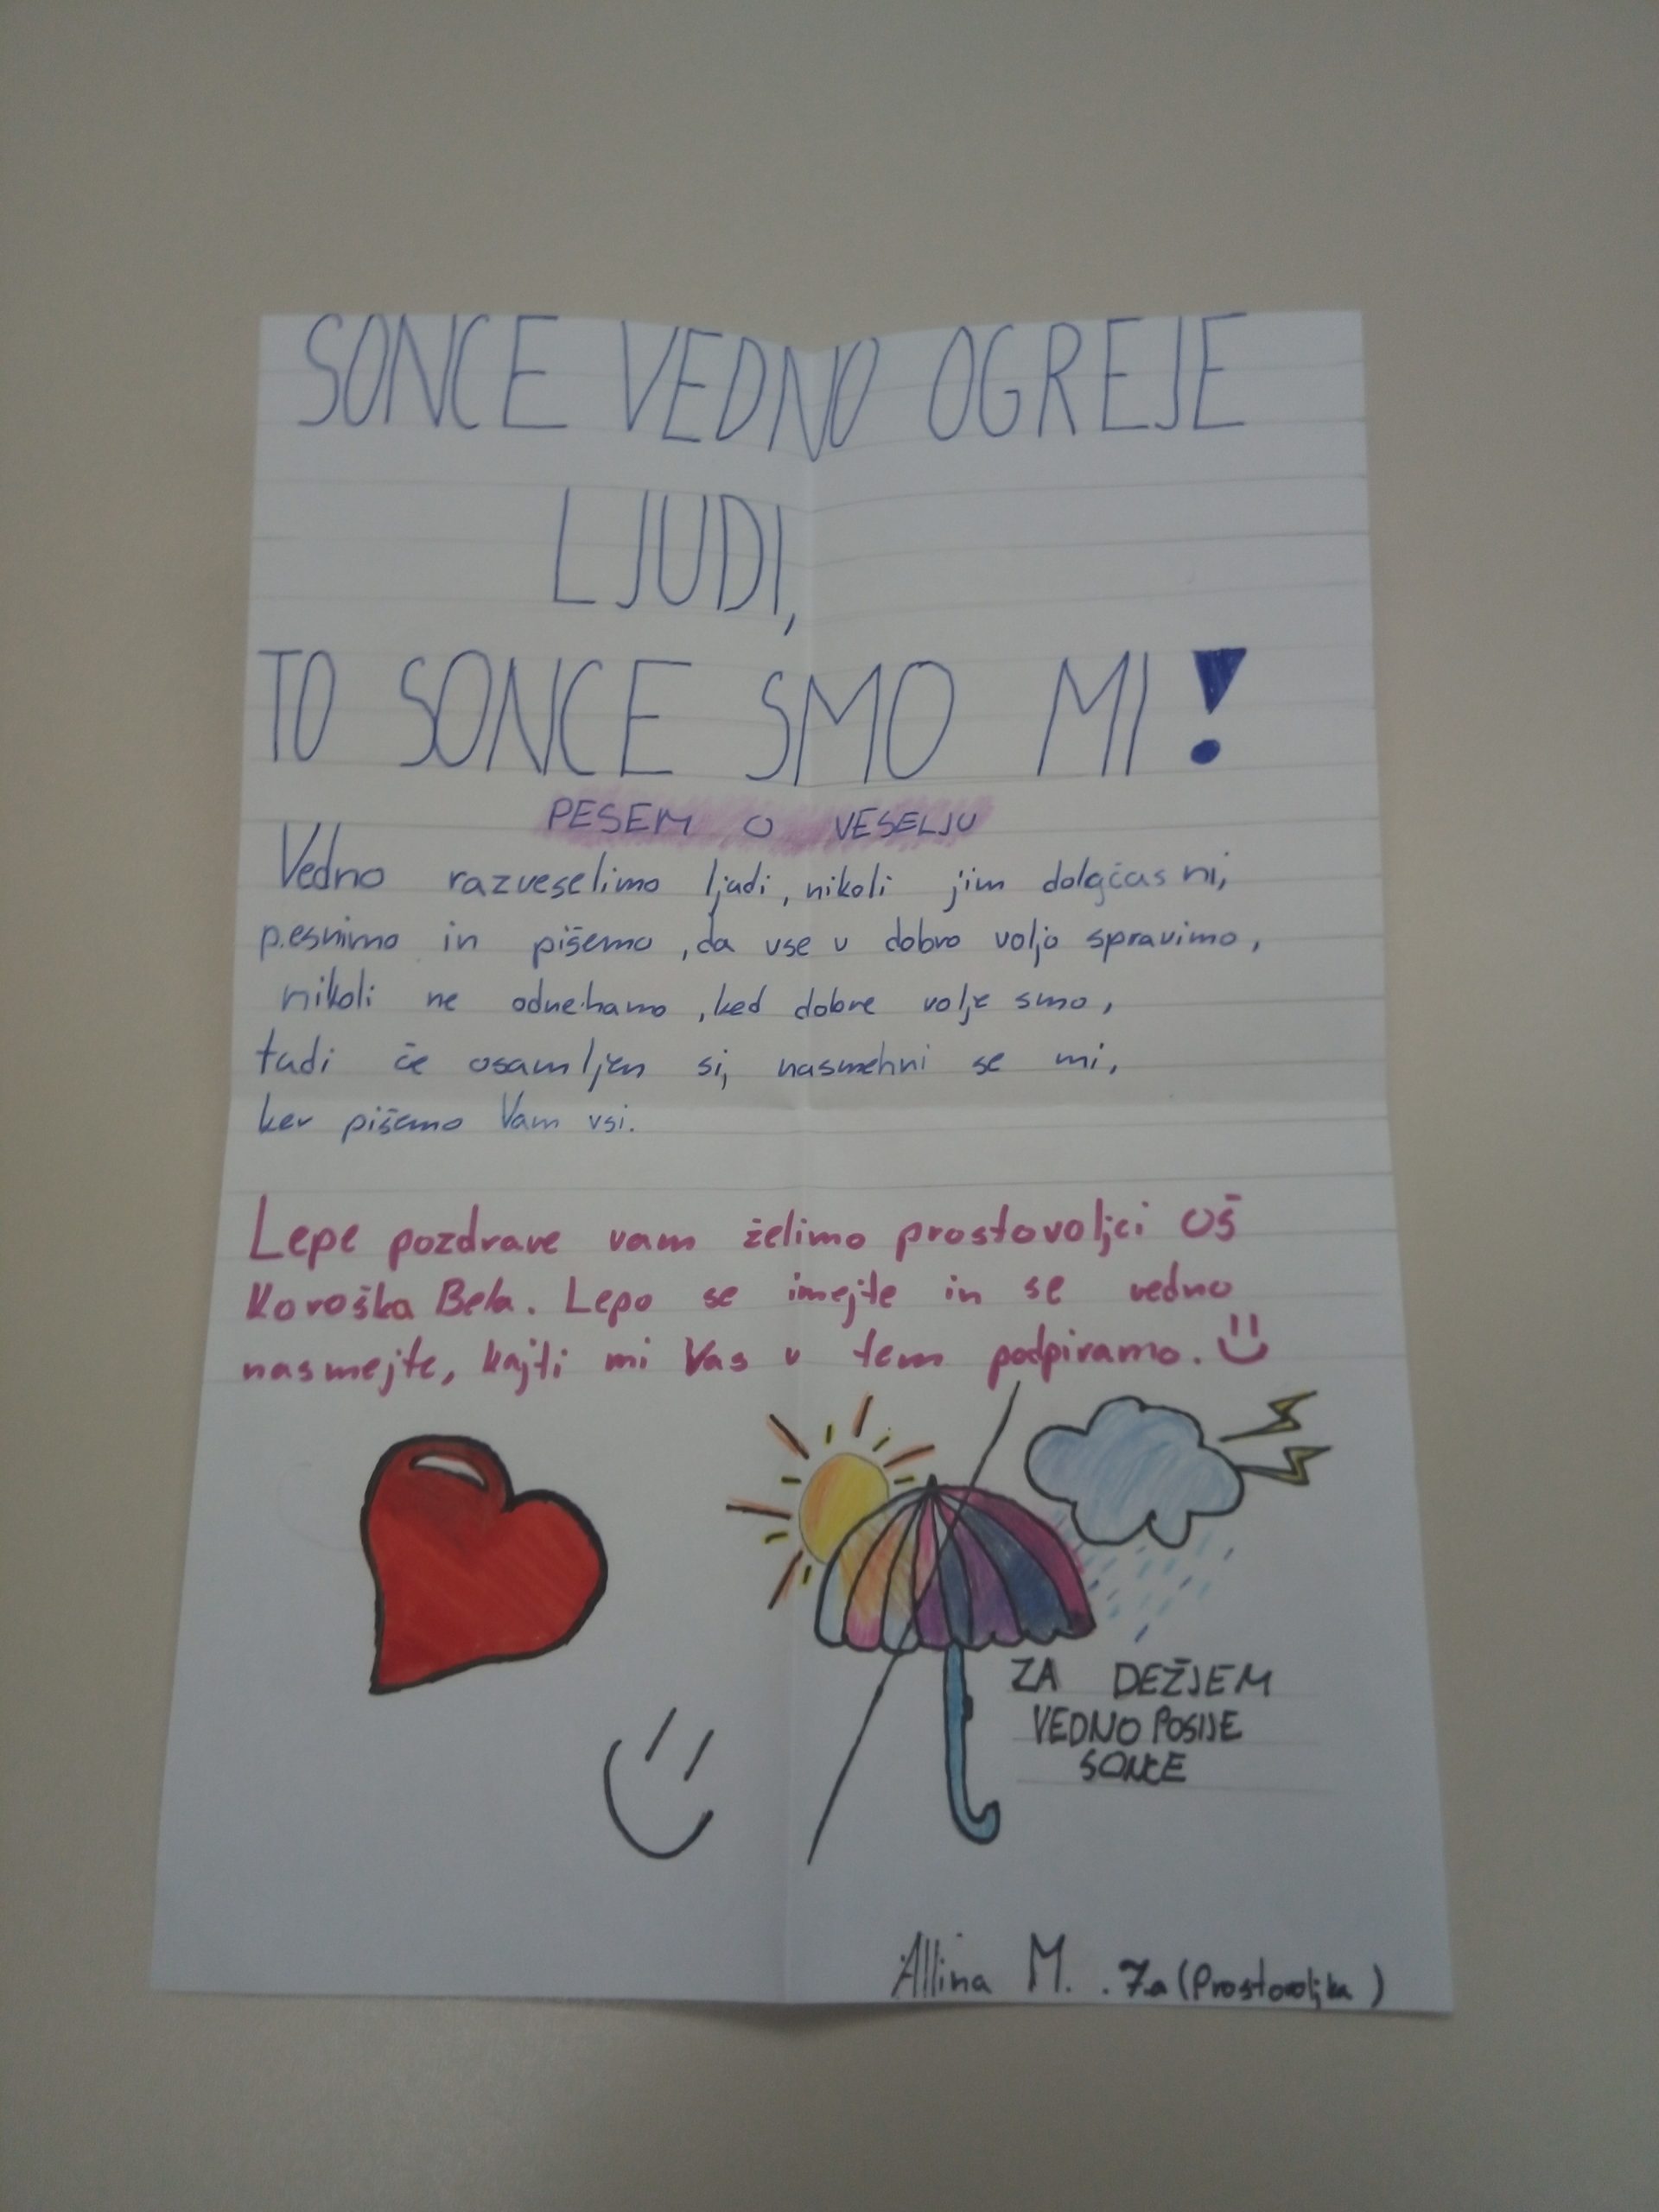 SONCE VEDNO OGREJE
LJUDI,
TO SONCE SMO MI!
PESEM O VESELJU
Vedno razveselimo ljudi, nikoli jim dolgčas ni,
pesnimo in pišemo, da vse v dobro voljo spravimo,
nikoli ne odnehamo, ked dobre volje smo,
tudi če osamljen si, nasmehni se mi,
ker pišemo Vam vsi.
Lepe pozdrave vam želimo prostovoljci OŠ
Koroška Bela. Lepo se imejte in se vedno
nasmejte, kajti mi Vas v tem podpiramo.
ZA DEŽJEM
VEDNO POSIJE
SONCE
Allina M. . 7.a (Prostovoljka)